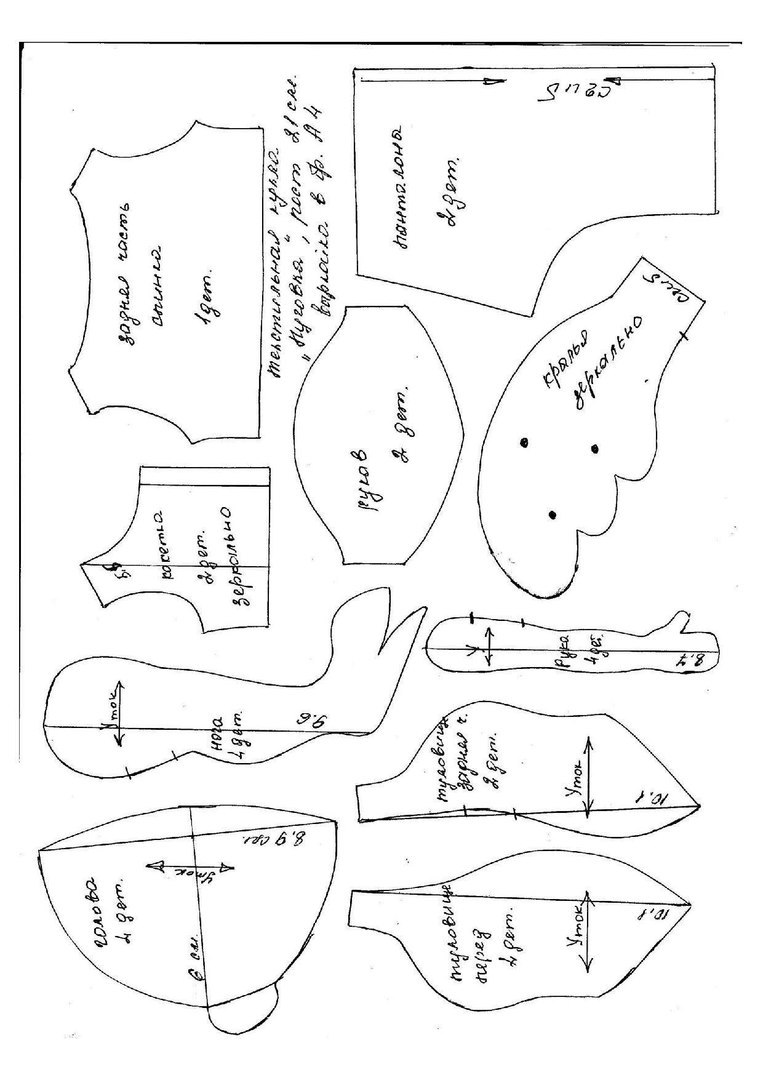 Текстильная кукла
"Пуговка", рост 21 см.
выкройка в ф. А4
задняя часть
спинка
1 дет.
сгиб
панталоны
2 дет.
рукав
2 дет.
сгиб
крылья
зеркально
кокетка
2 дет.
зеркально
у.
рука
4 дет.
8,7
уток
нога
4 дет.
9.6
туловище
задняя ч.
2 дет.
уток
10,1
8,9 см.
уток
голова
4 дет.
6 см.
туловище
перед
2 дет.
уток
10,1